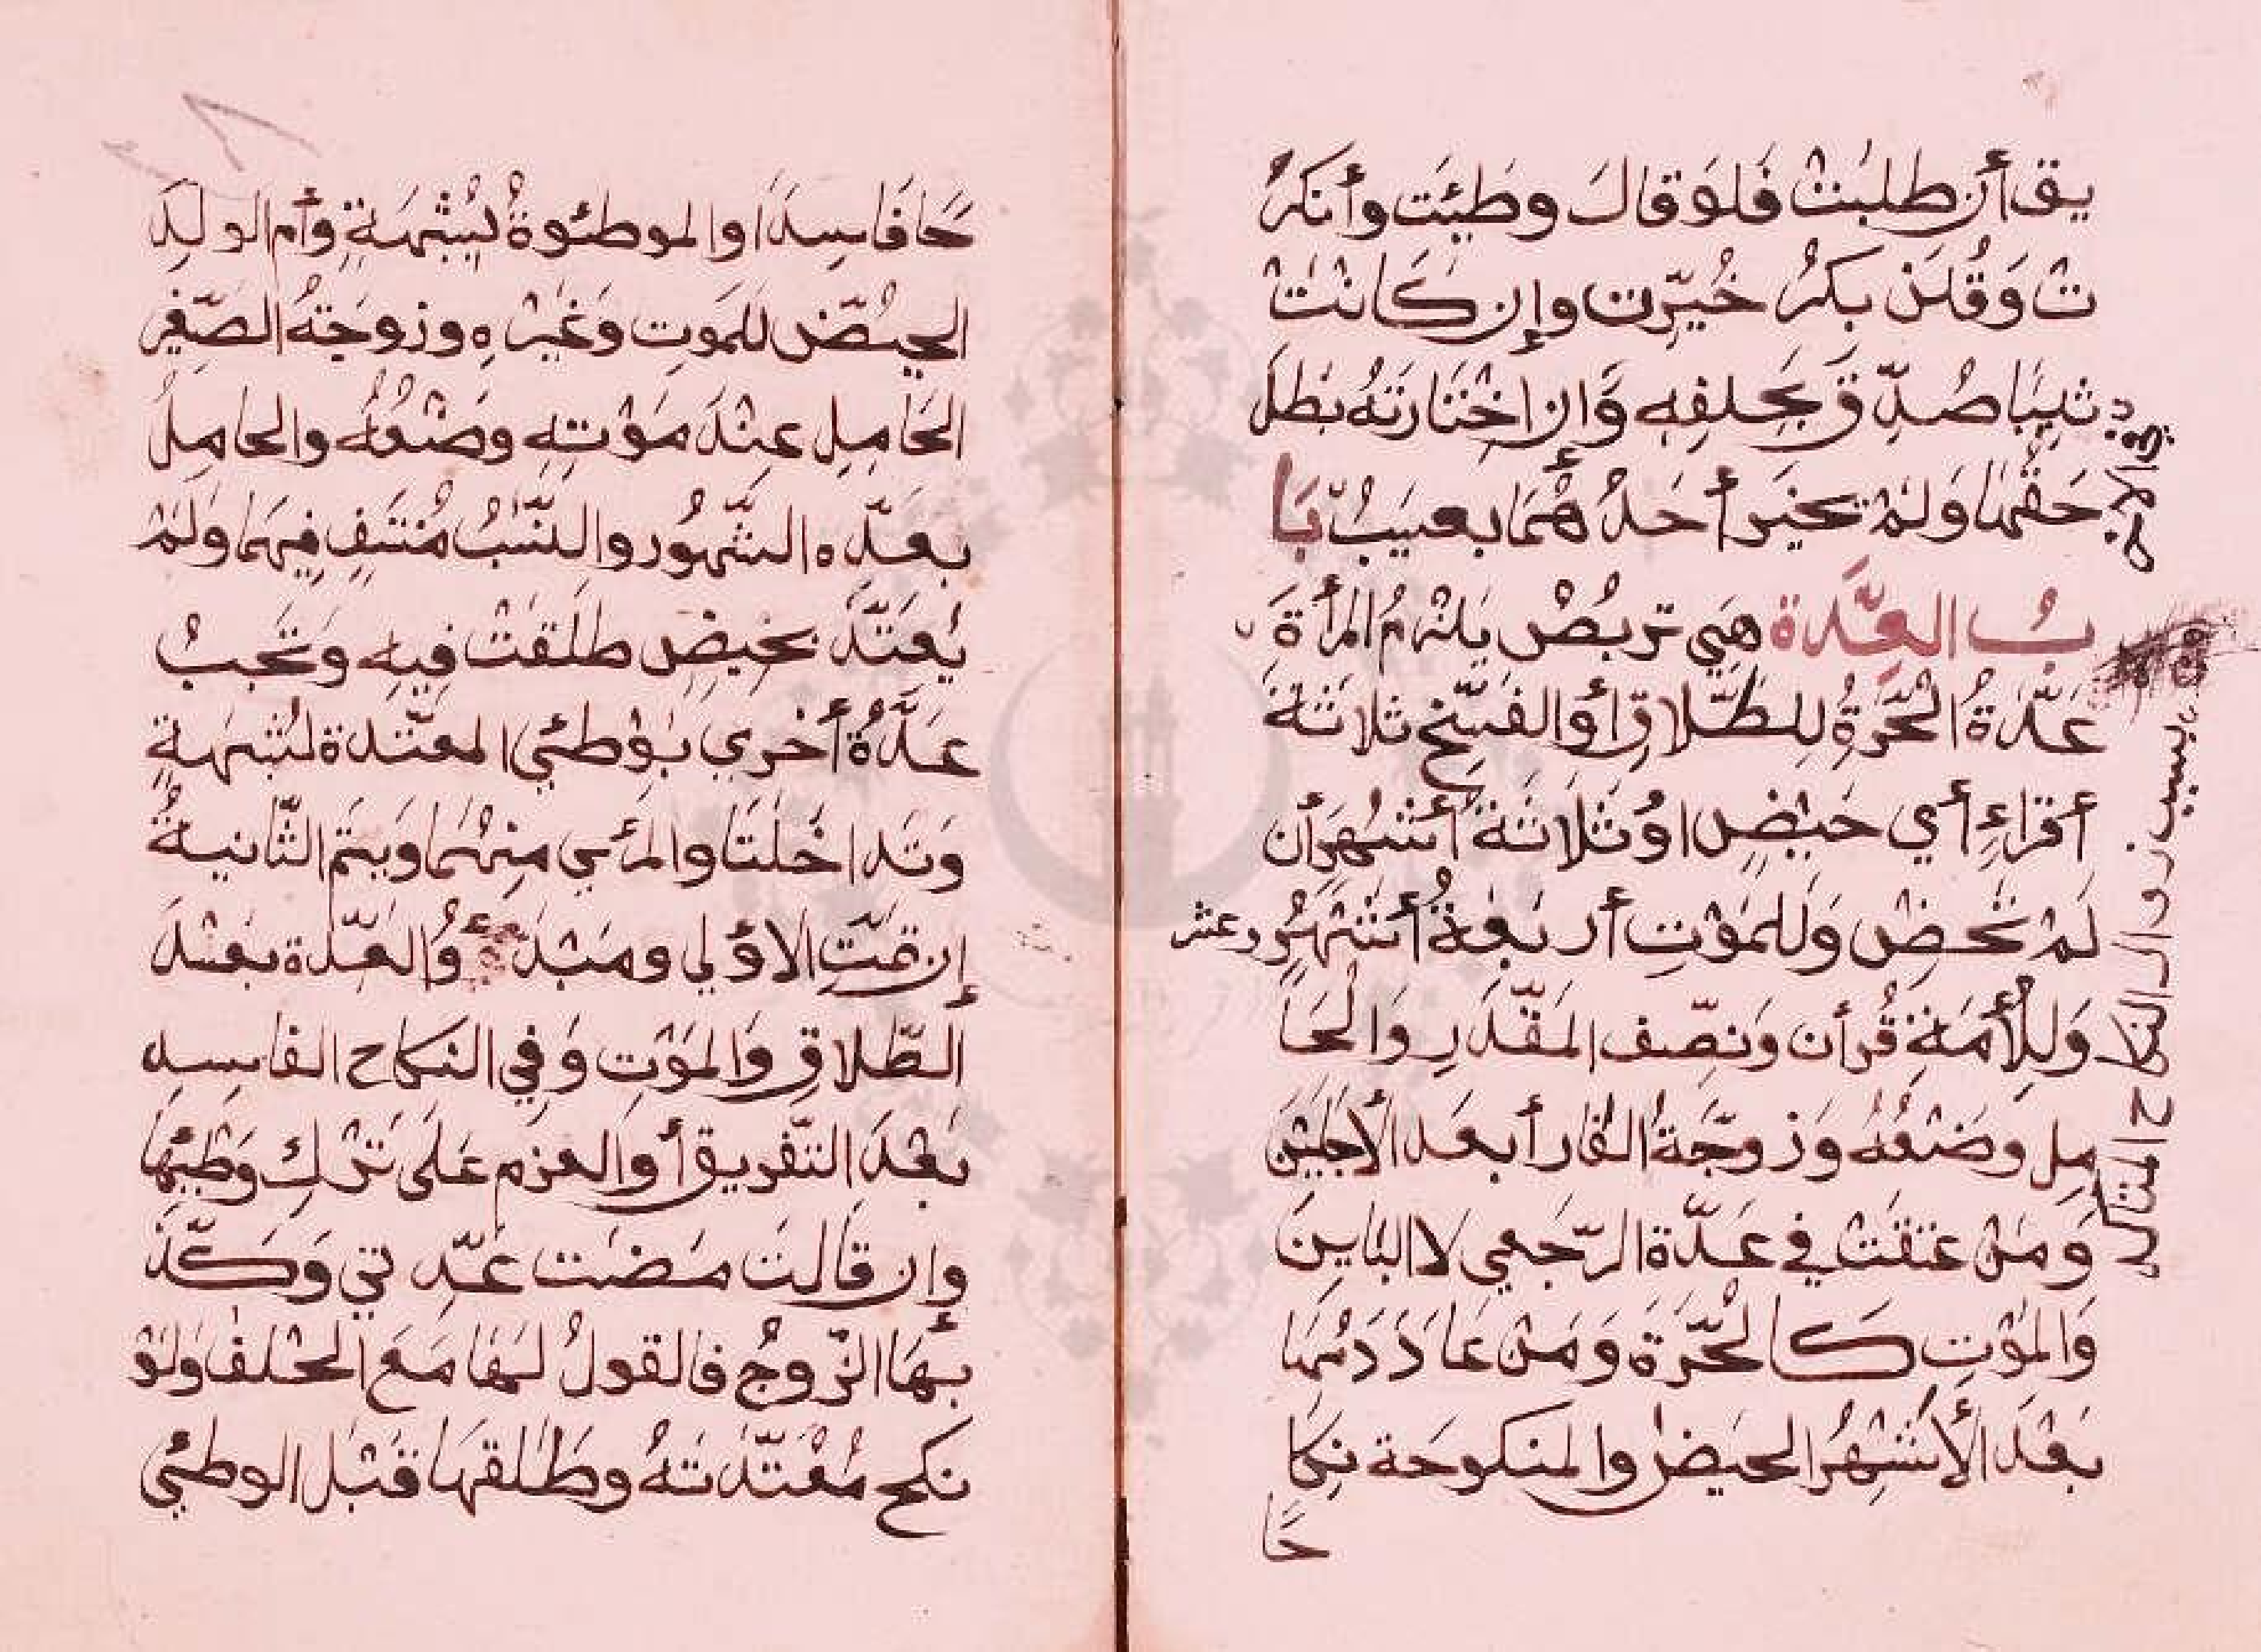 يق أن طلبت فلو قال وطيئت وأنكر
ت وقلن بكر خيّرت وإن كانت
ثيبا صدّق بحلفه وإن اختارته بطل
حقها ولم يخير أحدهما بعيب با
ب العدّة هي تربص يلزم المرأة
عدّة الحرّة للطّلاق أو الفسخ ثلاثة
أقراء أي حيض او ثلاثة أشهر أن
لم تحض وللموت أربعة أشهر وعشر
وللأمة قرأن ونصّف المقدر والحا
مل وضعه وزوجة الفار أبعد الأجلين
ومن عتقت في عدّة الرّجعي لا الباين
والموت كالحرّة ومن عاد دمها
بعد الأشهر الحيض والمنكوحة نكا
حا
بسبب زوال النكاح المتاكد
حا فاسدا والموطئوة بشبهة وأم الولد
الحيض للموت وغيره وزوجة الصّغير
الحامل عند موته وضعه والحامل
بعده الشّهور والنّسب منتف فيهما ولم
يعتدّ بحيض طلقت فيه وتجب
عدّة أخري بوطئي المعتدّة لشبهة
وتداخلتا والمرأي منهما ويتم الثّانية
إن تمّت الاؤلي ومبدؤ العدّة بعد
الطّلاق والموت وفي النكاح الفاسد
بعد التّفريق أو العزم على ترك وطئها
وإن قالت مضت عدّتي وكذّ
بها الزّوج فالقول لها مع الحلف ولو
نكح معتدّته وطلقها قبل الوطئي